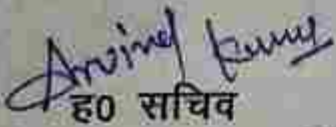 Arvind Kumar
ह0 सचिव